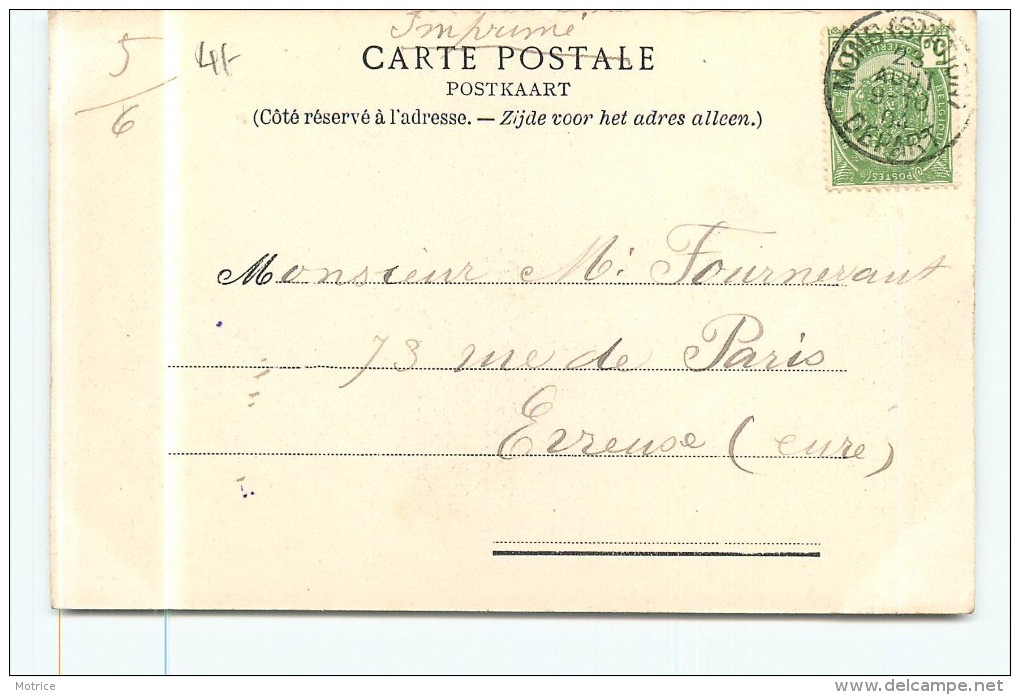 Imprimé
5
6
4f-
CARTE POSTALE
POSTKAART
(Côté réservé à l'adresse. — Zijde voor het adres alleen.)
MONS (STATION)
23
9-10
DEPART
BELGIQUE
POSTES
Monsieur M. Fournevaut
73 rue de Paris
Evreuse (eure)
Motrice
www.delcampe.net